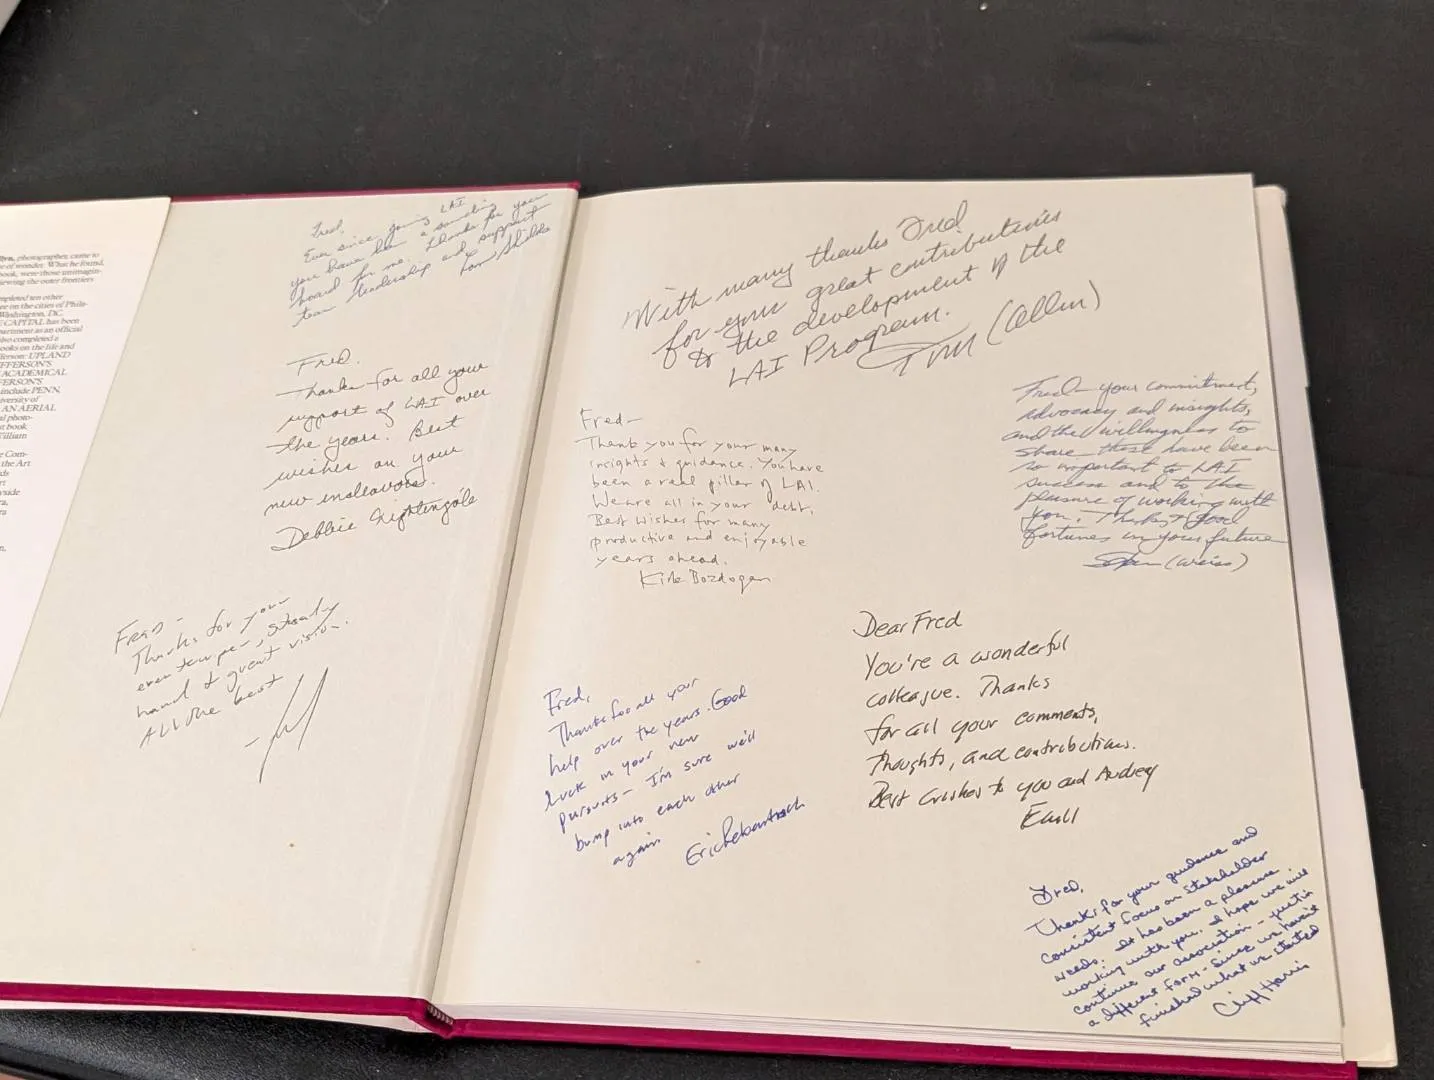 lyn, photographer, came to
e of wonder. What he found,
book, were those unimagin-
iewing the outer frontiers
mpleted ten other
er on the cities of Phila-
Washington, DC.
E CAPITAL has been
partment as an official
also completed a
ooks on the life and
ferson: UPLAND
EFFERSON'S
ACADEMICAL
FERSON'S
include PENN,
iversity of
AN AERIAL
al photo-
st book
William
e Com-
the Art
Fred,
Ever since joining LAI
you have been a sounding
board for me. Thanks for your
leadership and support
Tom Shields
Fred.
Thanks for all your
support of LAI over
the years. Best
wishes on your
new endeavors.
Debbie Nightingale
FRED -
Thanks for your
even temper, steady
hand & great vision.
ALL THE best
With many thanks Fred
for your great contributions
to the development of the
LAI Program.
Tom (Allen)
Fred-
Thank you for your many
insights & guidance. You have
been a real pillar of LAI.
We are all in your debt.
Best wishes for many
productive and enjoyable
years ahead.
Kirk Bozdogan
Fred - your commitment,
advocacy and insights,
and the willingness to
share these have been
so important to LAI
success and to the
pleasure of working with
you. Thanks & good
fortunes in your future
Stan (Weiss)
Fred,
Thanks for all your
help over the years. Good
luck in your new
pursuits - I'm sure we'll
bump into each other
again
Eric Rebentisch
Dear Fred
You're a wonderful
colleague. Thanks
for all your comments,
thoughts, and contributions.
Best wishes to you and Audrey
Earll
Fred,
Thanks for your guidance and
consistent focus on stakeholder
needs. It has been a pleasure
working with you. I hope we will
continue our association - just in
a different form - since we haven't
finished what we started
Cliff Harris